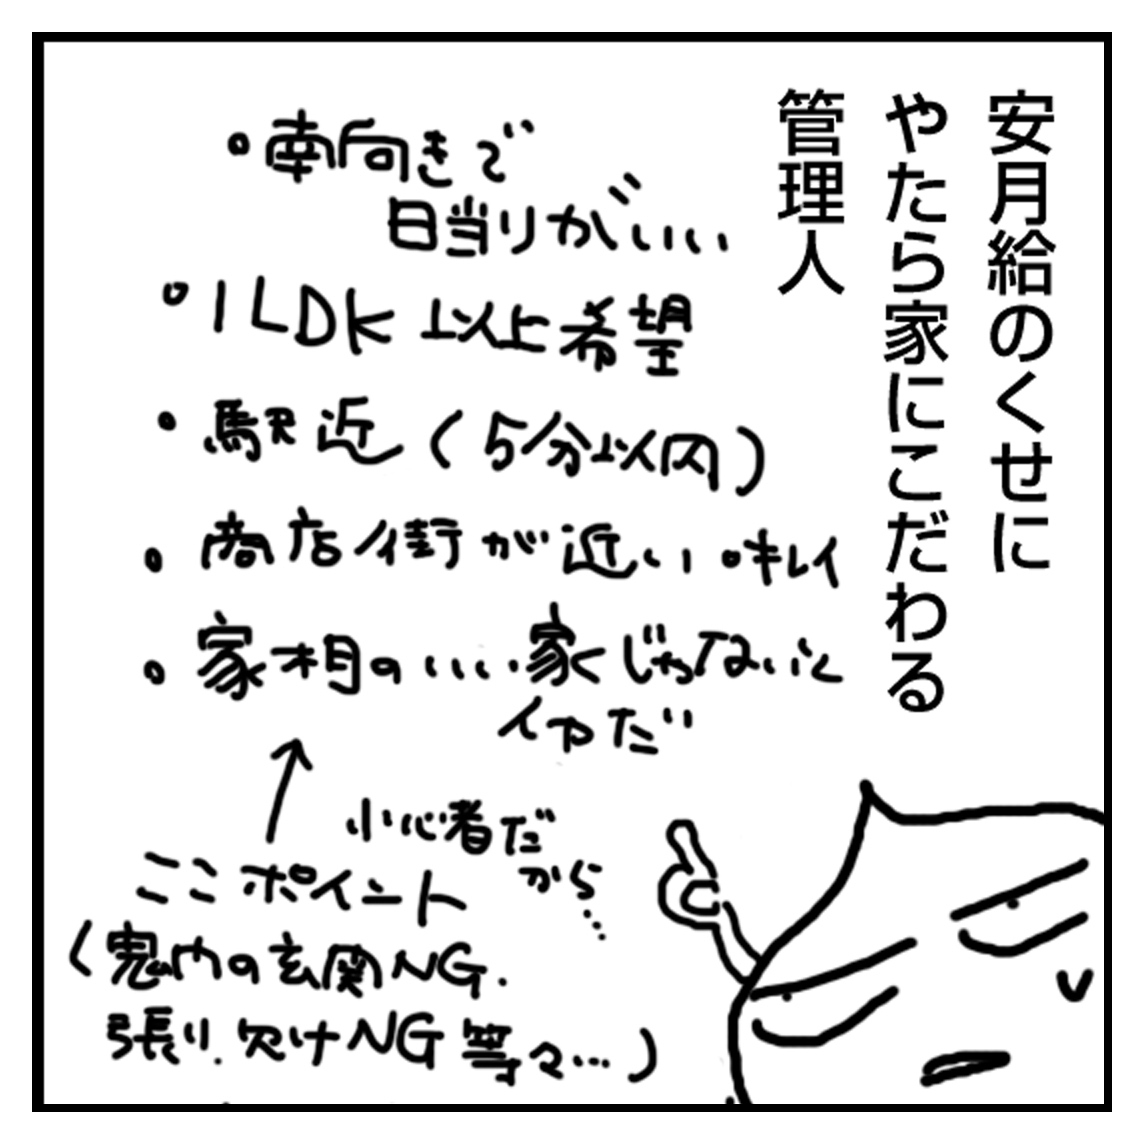 安月給のくせに
やたら家にこだわる
管理人
・南向きで
日当りがいい
・1LDK以上希望
・駅近(5分以内)
・商店街が近い キレイ
・家相のいい家じゃないと
イヤだ
↑
小心者だ
から…
ここポイント
(鬼門の玄関NG.
張り.欠けNG等々…)